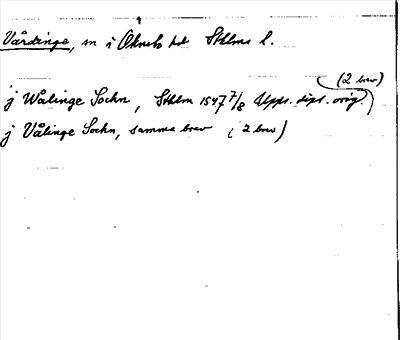 Vårdinge, sn i Öknebo hd Sthlms l.
(2 brev)
j Wålinge Sochn, Sthlm 1547 7/8 Upps. dipl. orig.
j Vålinge Sochn, samma brev (2 brev)